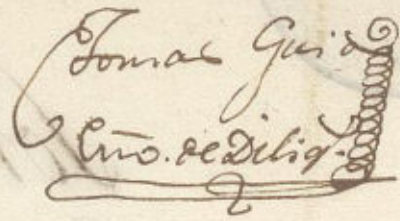 Tomas Guido
Eño. de Dilig.